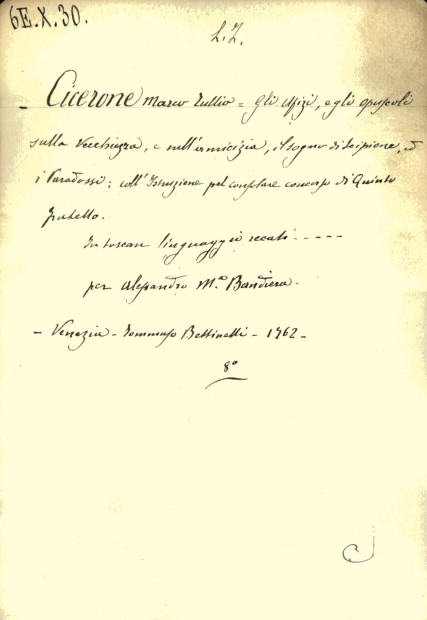 6E.X.30.
L.Z.
- Cicerone Marco Tullio = Gli Ufizi, e gli opuscoli
sulla Vecchiezza, e sull'amicizia, il sogno di Scipione, ed
i Paradossi; coll'Istruzione pel consolare concorso di Quinto
fratello.
In toscan linguaggio recati -----
per Alessandro M.ª Bandiera-
- Venezia - Tommaso Bettinelli - 1762-
8º